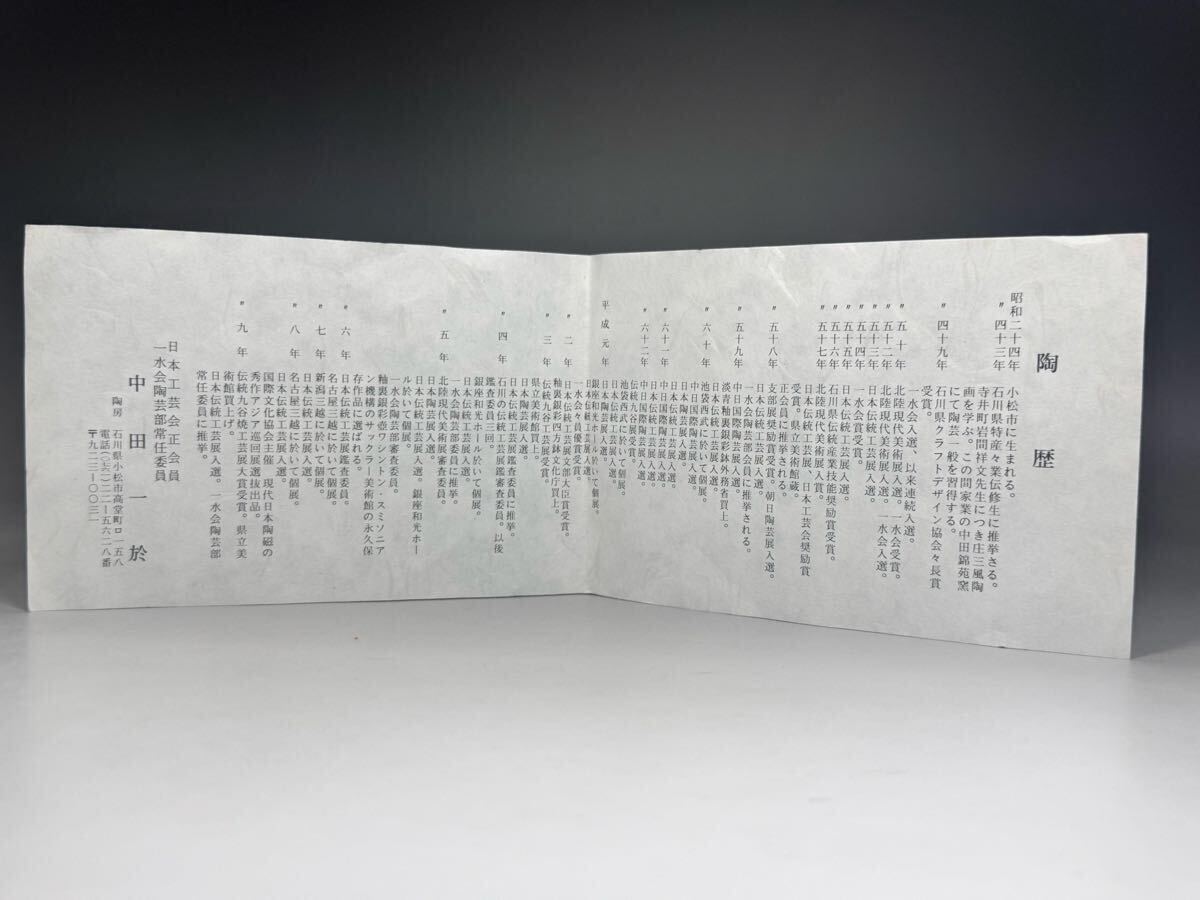 陶歴
昭和二十四年 小松市に生まれる。
〃 四十三年 石川県特産々業伝修生に推挙さる。
寺井町岩間祥文先生につき庄三風陶
画を学ぶ、この間家業の中田錦苑窯
にて陶芸一般を習得する。
〃 四十九年 石川県クラフトデザイン協会々長賞
受賞。
一水会入選、以来連続入選。
〃 五十年 北陸現代美術展入選。一水会受賞。
〃 五十二年 北陸現代美術展入選。一水会入選。
〃 五十三年 日本伝統工芸展入選。
〃 五十四年 一水会受賞。
〃 五十五年 日本伝統工芸展入選。
〃 五十六年 石川県伝統産業技能奨励賞受賞。
〃 五十七年 北陸現代美術展入賞。
日本伝統工芸展、日本工芸会奨励賞
受賞。県立美術館蔵。
正会員に推挙される。
〃 五十八年 支部展奨励賞受賞。朝日陶芸展入選。
日本伝統工芸展入選。
一水会陶芸部会員に推挙される。
〃 五十九年 中日国際陶芸展入選。
淡青釉裏銀彩鉢外務省買上。
日本伝統工芸展入選。
〃 六十年 池袋西武に於いて個展。
中日国際陶芸展入選。
日本伝統工芸展入選。
日本陶芸展入選。
〃 六十一年 中日国際陶芸展入選。
日本伝統工芸展入選。
〃 六十二年 中日国際陶芸展入選。
伝統九谷展受賞。
池袋西武に於いて個展。
日本伝統工芸展入選。
平成元年 日本陶芸展入選。
銀座和光ホール於いて個展。
日本伝統工芸展入選。
一水会々員優賞受賞。
〃 二年 日本伝統工芸展文部大臣賞受賞。
釉裏銀彩四方鉢文化庁買上。
〃 三年 伝統九谷工芸展受賞。
県立美術館買上。
日本陶芸展入選。
日本伝統工芸展鑑査委員に推挙。
〃 四年 石川の伝統工芸展鑑査委員。以後
鑑査委員三回。
銀座和光ホール於いて個展。
日本伝統工芸展入選。
一水会陶芸部委員に推挙。
〃 五年 北陸現代美術展審査委員。
日本陶芸展入選。
日本伝統工芸展入選。銀座和光ホー
ル於いて個展。
一水会陶芸部審査委員。
釉裏銀彩壺ワシントン・スミソニア
ン機構のサックラー美術館の永久保
存作品に選ばれる。
〃 六年 日本伝統工芸展鑑査委員。
名古屋三越に於いて個展。
〃 七年 新潟三越に於いて個展。
日本伝統工芸展入選。
〃 八年 名古屋三越に於いて個展。
日本伝統工芸展入選。
国際文化協会主催、現代日本陶磁の
秀作アジア巡回展選抜出品。
〃 九年 伝統九谷焼工芸展大賞受賞。県立美
術館買上げ。
日本伝統工芸展入選。一水会陶芸部
常任委員に推挙。
日本工芸会正会員
一水会陶芸部常任委員
中田一於
陶房 石川県小松市高堂町ロ一五八
電話(〇七六一)二二―五六二八番
〒九二三―〇〇三一